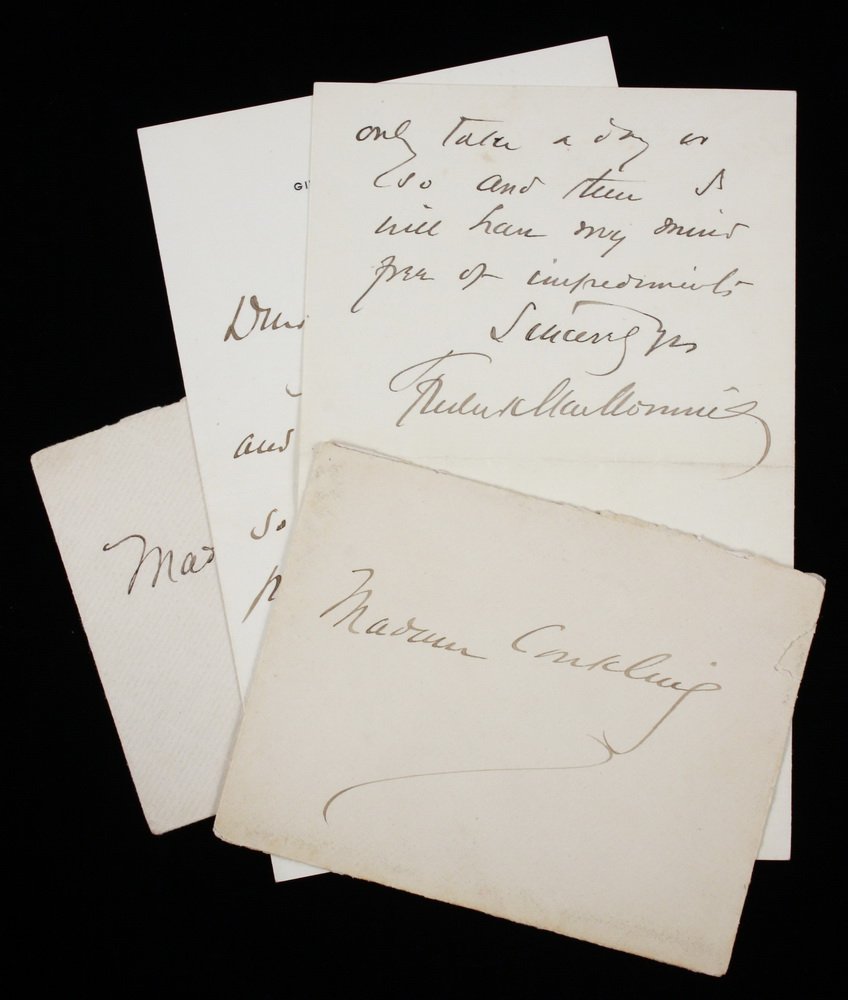 only take a day or
so and then I
will have my mind
free of impediments
Sincerely yrs
Frederick MacMonnies
GI
and
so
Mad
Madame Conkling